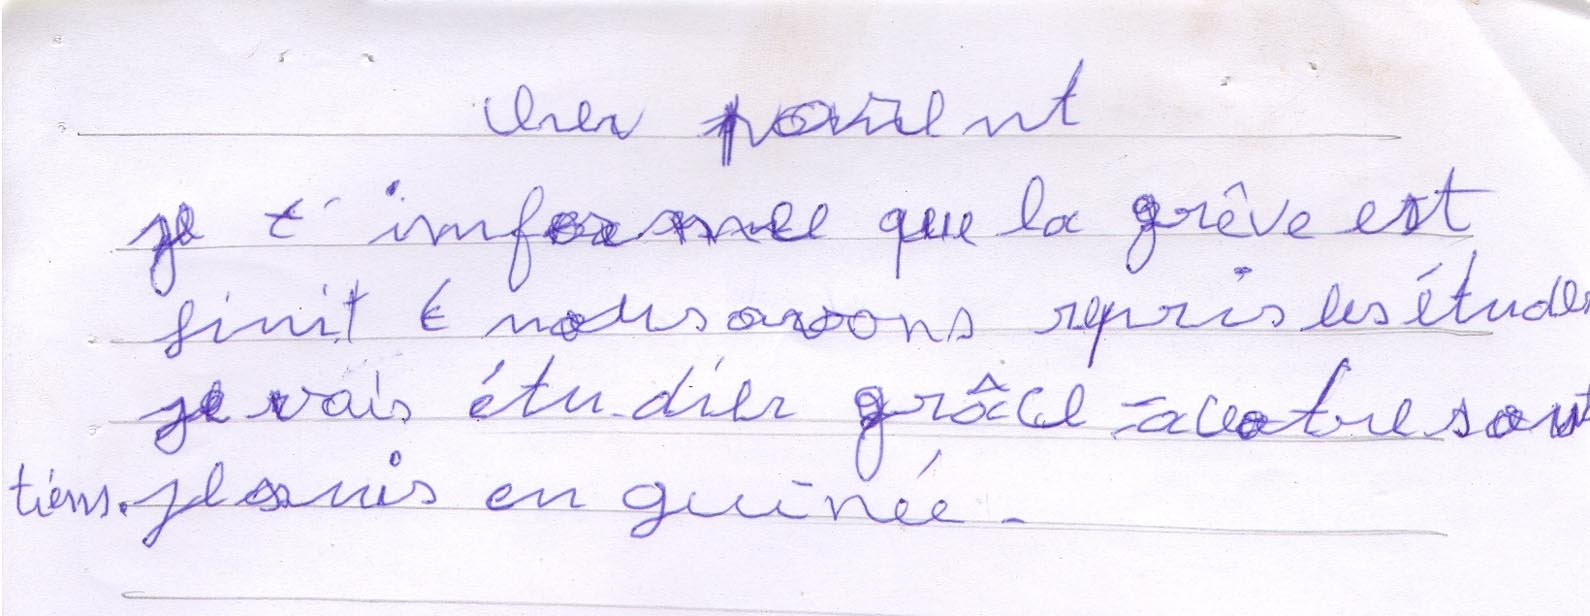 cher parent
je t'informe que la grève est
finit é nous avons repris les études
je vais étudier grâce à votre sout
tiens. je suis en guinée.